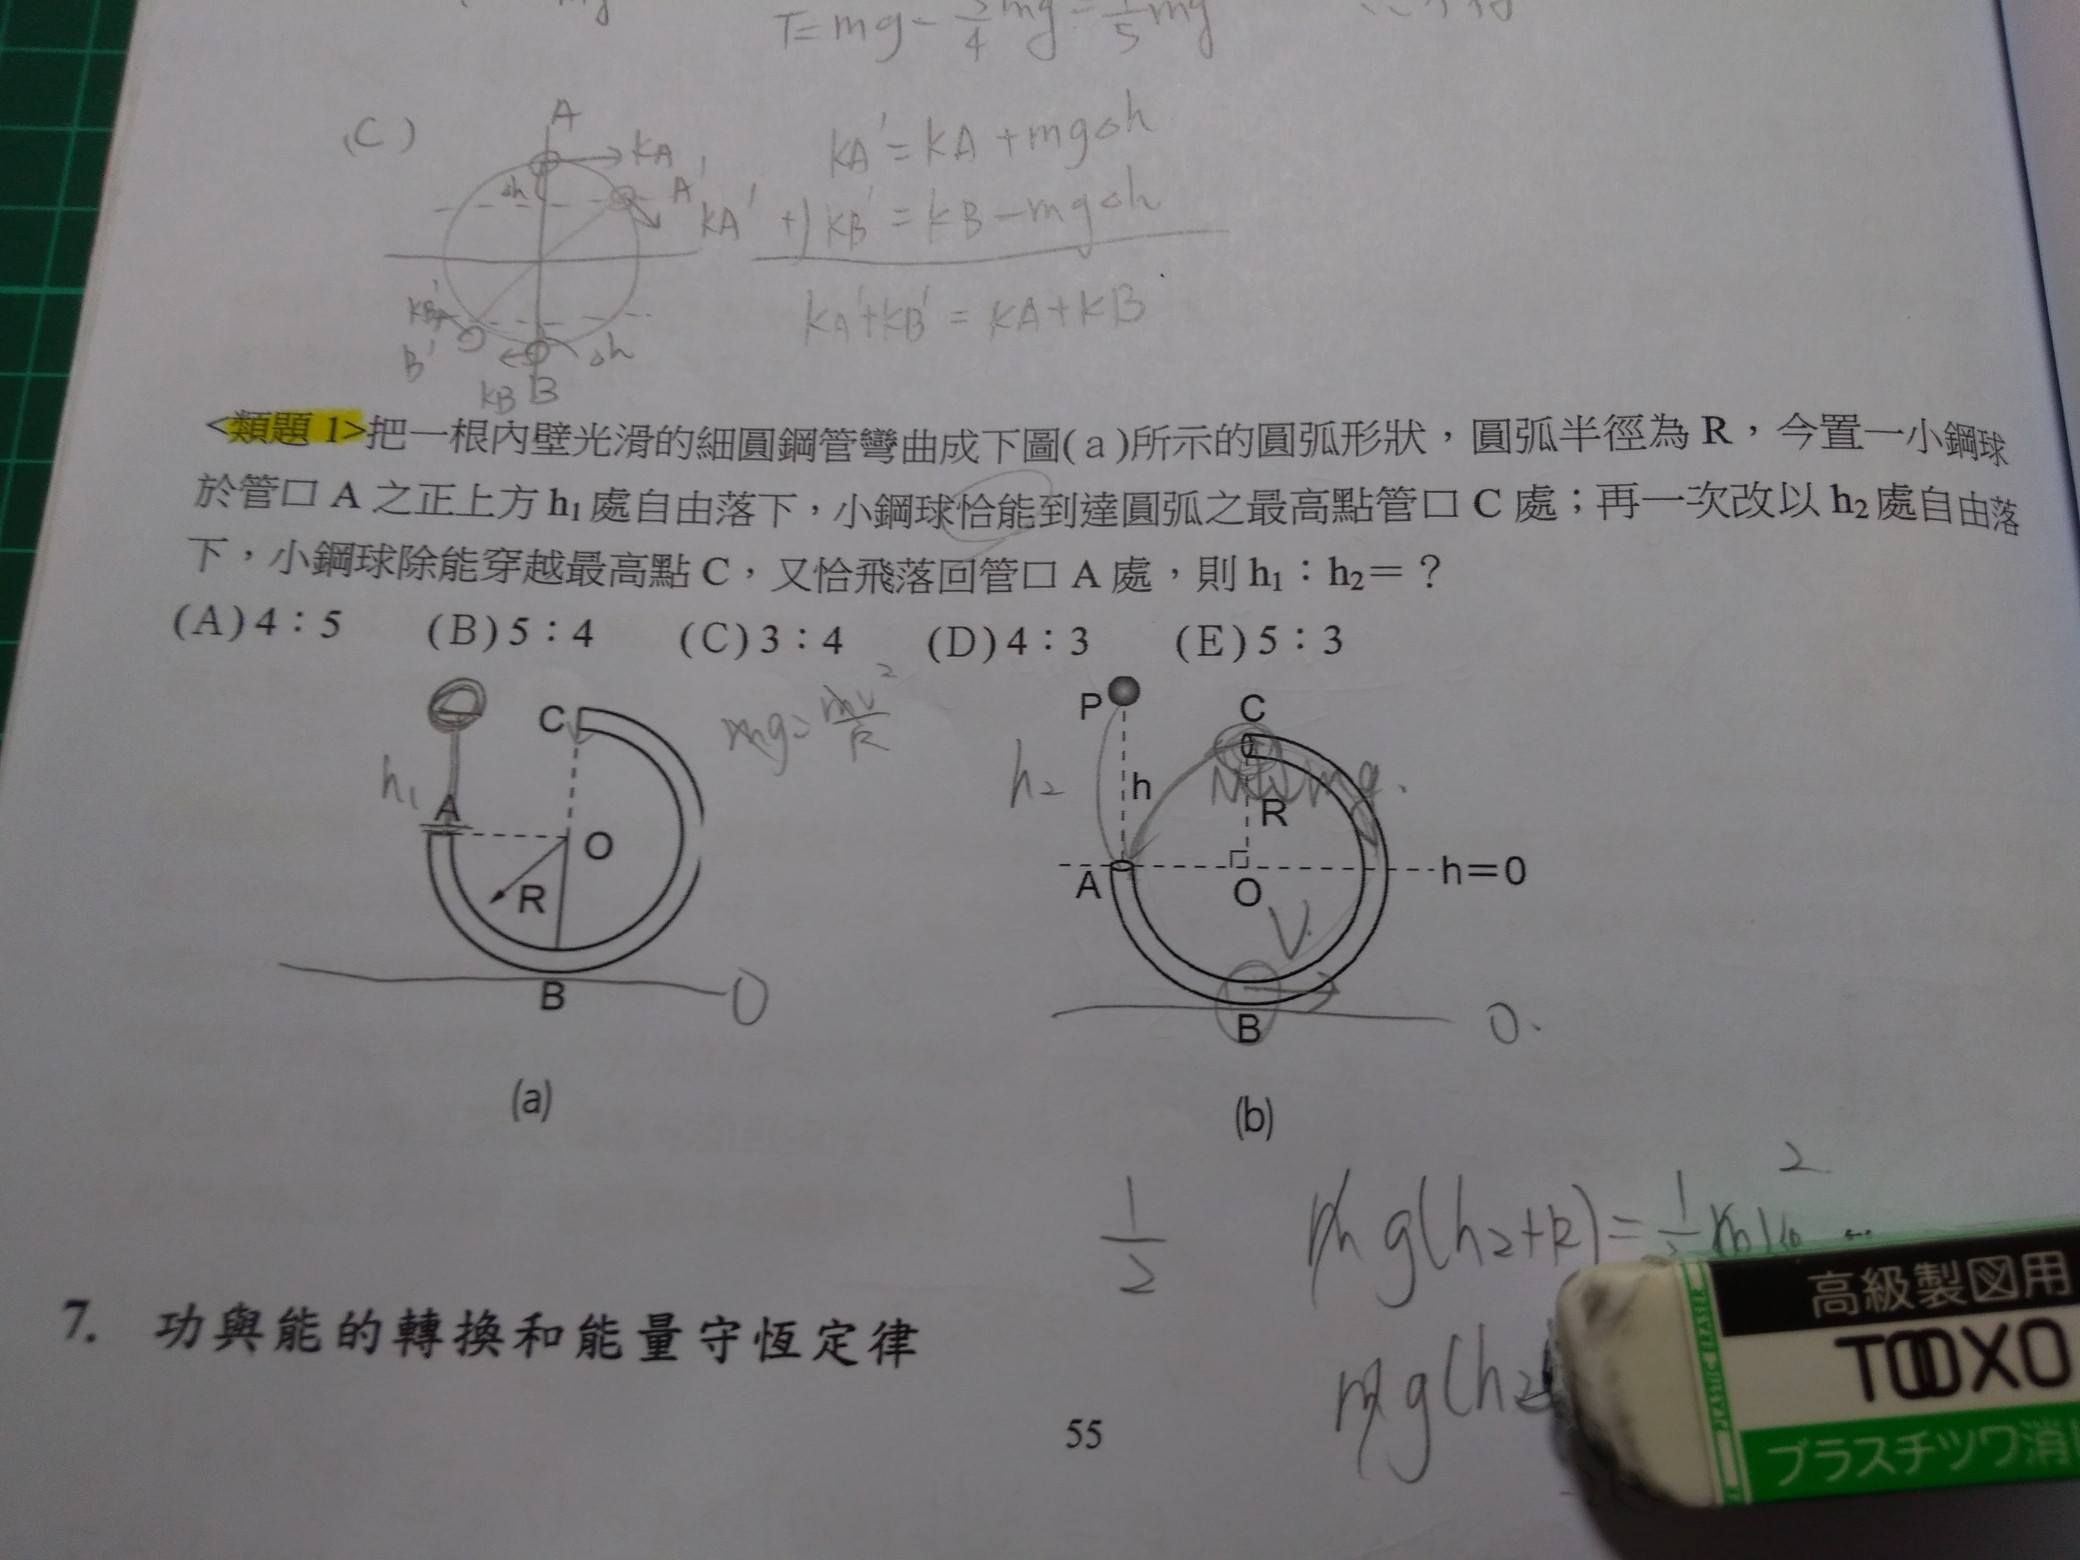 (C)
A
KA
Δh
A'
KA'
KB'
B'
KB
B
Δh
KA' = KA + mgΔh
+) KB' = KB - mgΔh
KA' + KB' = KA + KB
<類題 1>把一根內壁光滑的細圓鋼管彎曲成下圖(a)所示的圓弧形狀，圓弧半徑為 R，今置一小鋼球
於管口 A 之正上方 h₁ 處自由落下，小鋼球恰能到達圓弧之最高點管口 C 處；再一次改以 h₂ 處自由落
下，小鋼球除能穿越最高點 C，又恰飛落回管口 A 處，則 h₁：h₂＝？
(A)4：5 (B)5：4 (C)3：4 (D)4：3 (E)5：3
h₁
A
C
O
R
B
0
(a)
mg = mv²/R
P
h₂
h
C
R
mg
A
O
h＝0
V
B
0
(b)
1/2
mg(h₂+R) = 1/2 m
mg(h₂
7. 功與能的轉換和能量守恆定律
55
高級製図用
TOOXO
プラスチツワ消